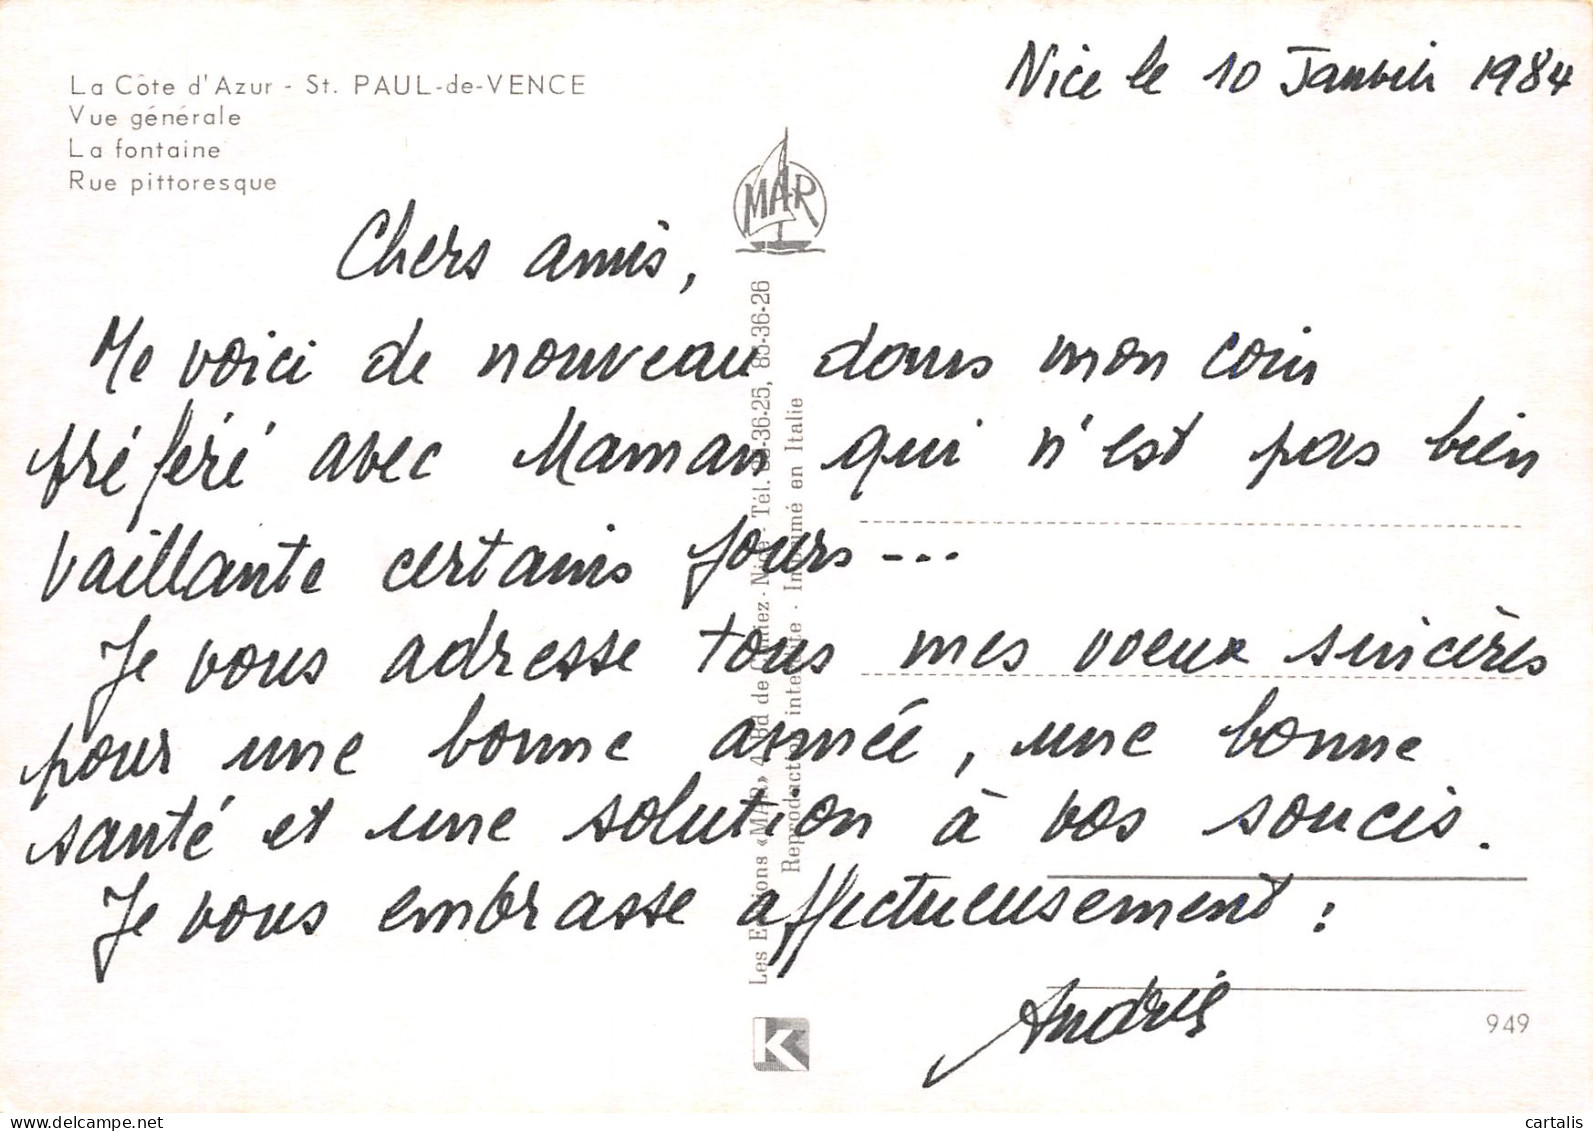 La Côte d'Azur - St. PAUL-de-VENCE
Vue générale
La fontaine
Rue pittoresque
Nice le 10 Janvier 1984
MAR
Chers amis,
Me voici de nouveau dans mon coin
préféré avec Maman qui n'est pas bien
vaillante certains jours ...
Je vous adresse tous mes voeux sincères
pour une bonne année, une bonne
santé et une solution à vos soucis.
Je vous embrasse affectueusement :
949
K
Les Editions «MAR» 4, Bd de - Nice - Tél. 36-25, 36-26
Reproduction interdite · Imprimé en Italie
delcampe.net
cartalis